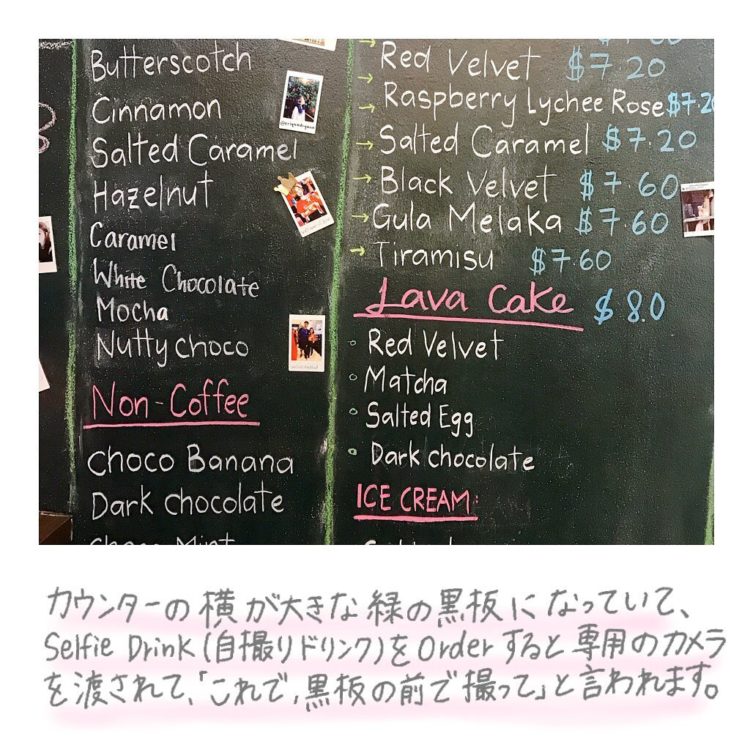 Butterscotch
Cinnamon
Salted Caramel
Hazelnut
Caramel
White Chocolate
Mocha
Nutty Choco
Non-Coffee
Choco Banana
Dark chocolate
Choco Mint
→ Red Velvet $7.20
→ Raspberry Lychee Rose $7.20
→ Salted Caramel $7.20
→ Black Velvet $7.60
→ Gula Melaka $7.60
→ Tiramisu $7.60
Lava Cake $8.0
Red Velvet
Matcha
Salted Egg
Dark chocolate
ICE CREAM:
カウンターの横が大きな緑の黒板になっていて、
Selfie Drink(自撮りドリンク)をOrderすると専用のカメラ
を渡されて、「これで,黒板の前で撮って」と言われます。